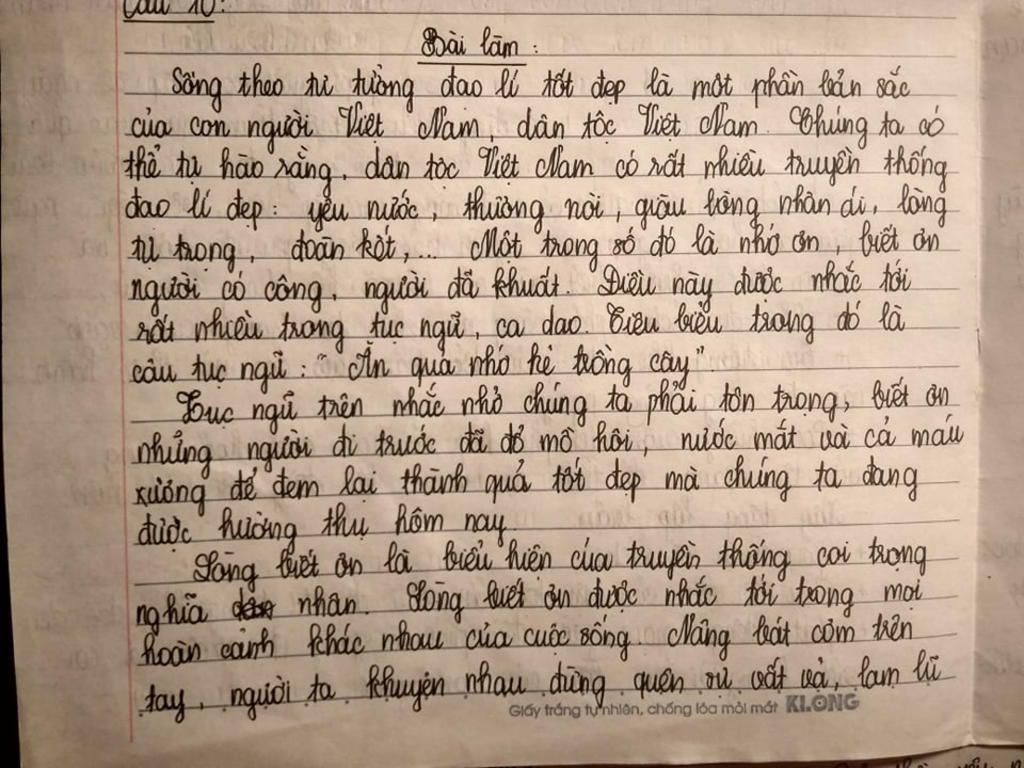 Câu 10:
Bài làm:
Sống theo tư tưởng đạo lí tốt đẹp là một phần bản sắc
của con người Việt Nam, dân tộc Việt Nam. Chúng ta có
thể tự hào rằng, dân tộc Việt Nam có rất nhiều truyền thống
đạo lí đẹp: yêu nước, thương nòi, giàu lòng nhân ái, lòng
tự trọng, đoàn kết,... Một trong số đó là nhớ ơn, biết ơn
người có công, người đã khuất. Điều này được nhắc tới
rất nhiều trong tục ngữ, ca dao. Tiêu biểu trong đó là
câu tục ngữ: "Ăn quả nhớ kẻ trồng cây".
Tục ngữ trên nhắc nhở chúng ta phải tôn trọng, biết ơn
những người đi trước đã đổ mồ hôi, nước mắt và cả máu
xương để đem lại thành quả tốt đẹp mà chúng ta đang
được hưởng thụ hôm nay.
Lòng biết ơn là biểu hiện của truyền thống coi trọng
nghĩa nhân. Lòng biết ơn được nhắc tới trong mọi
hoàn cảnh khác nhau của cuộc sống. Nâng bát cơm trên
tay, người ta khuyên nhau đừng quên sự vất vả, lam lũ
Giấy trắng tự nhiên, chống lóa mỏi mắt KLONG